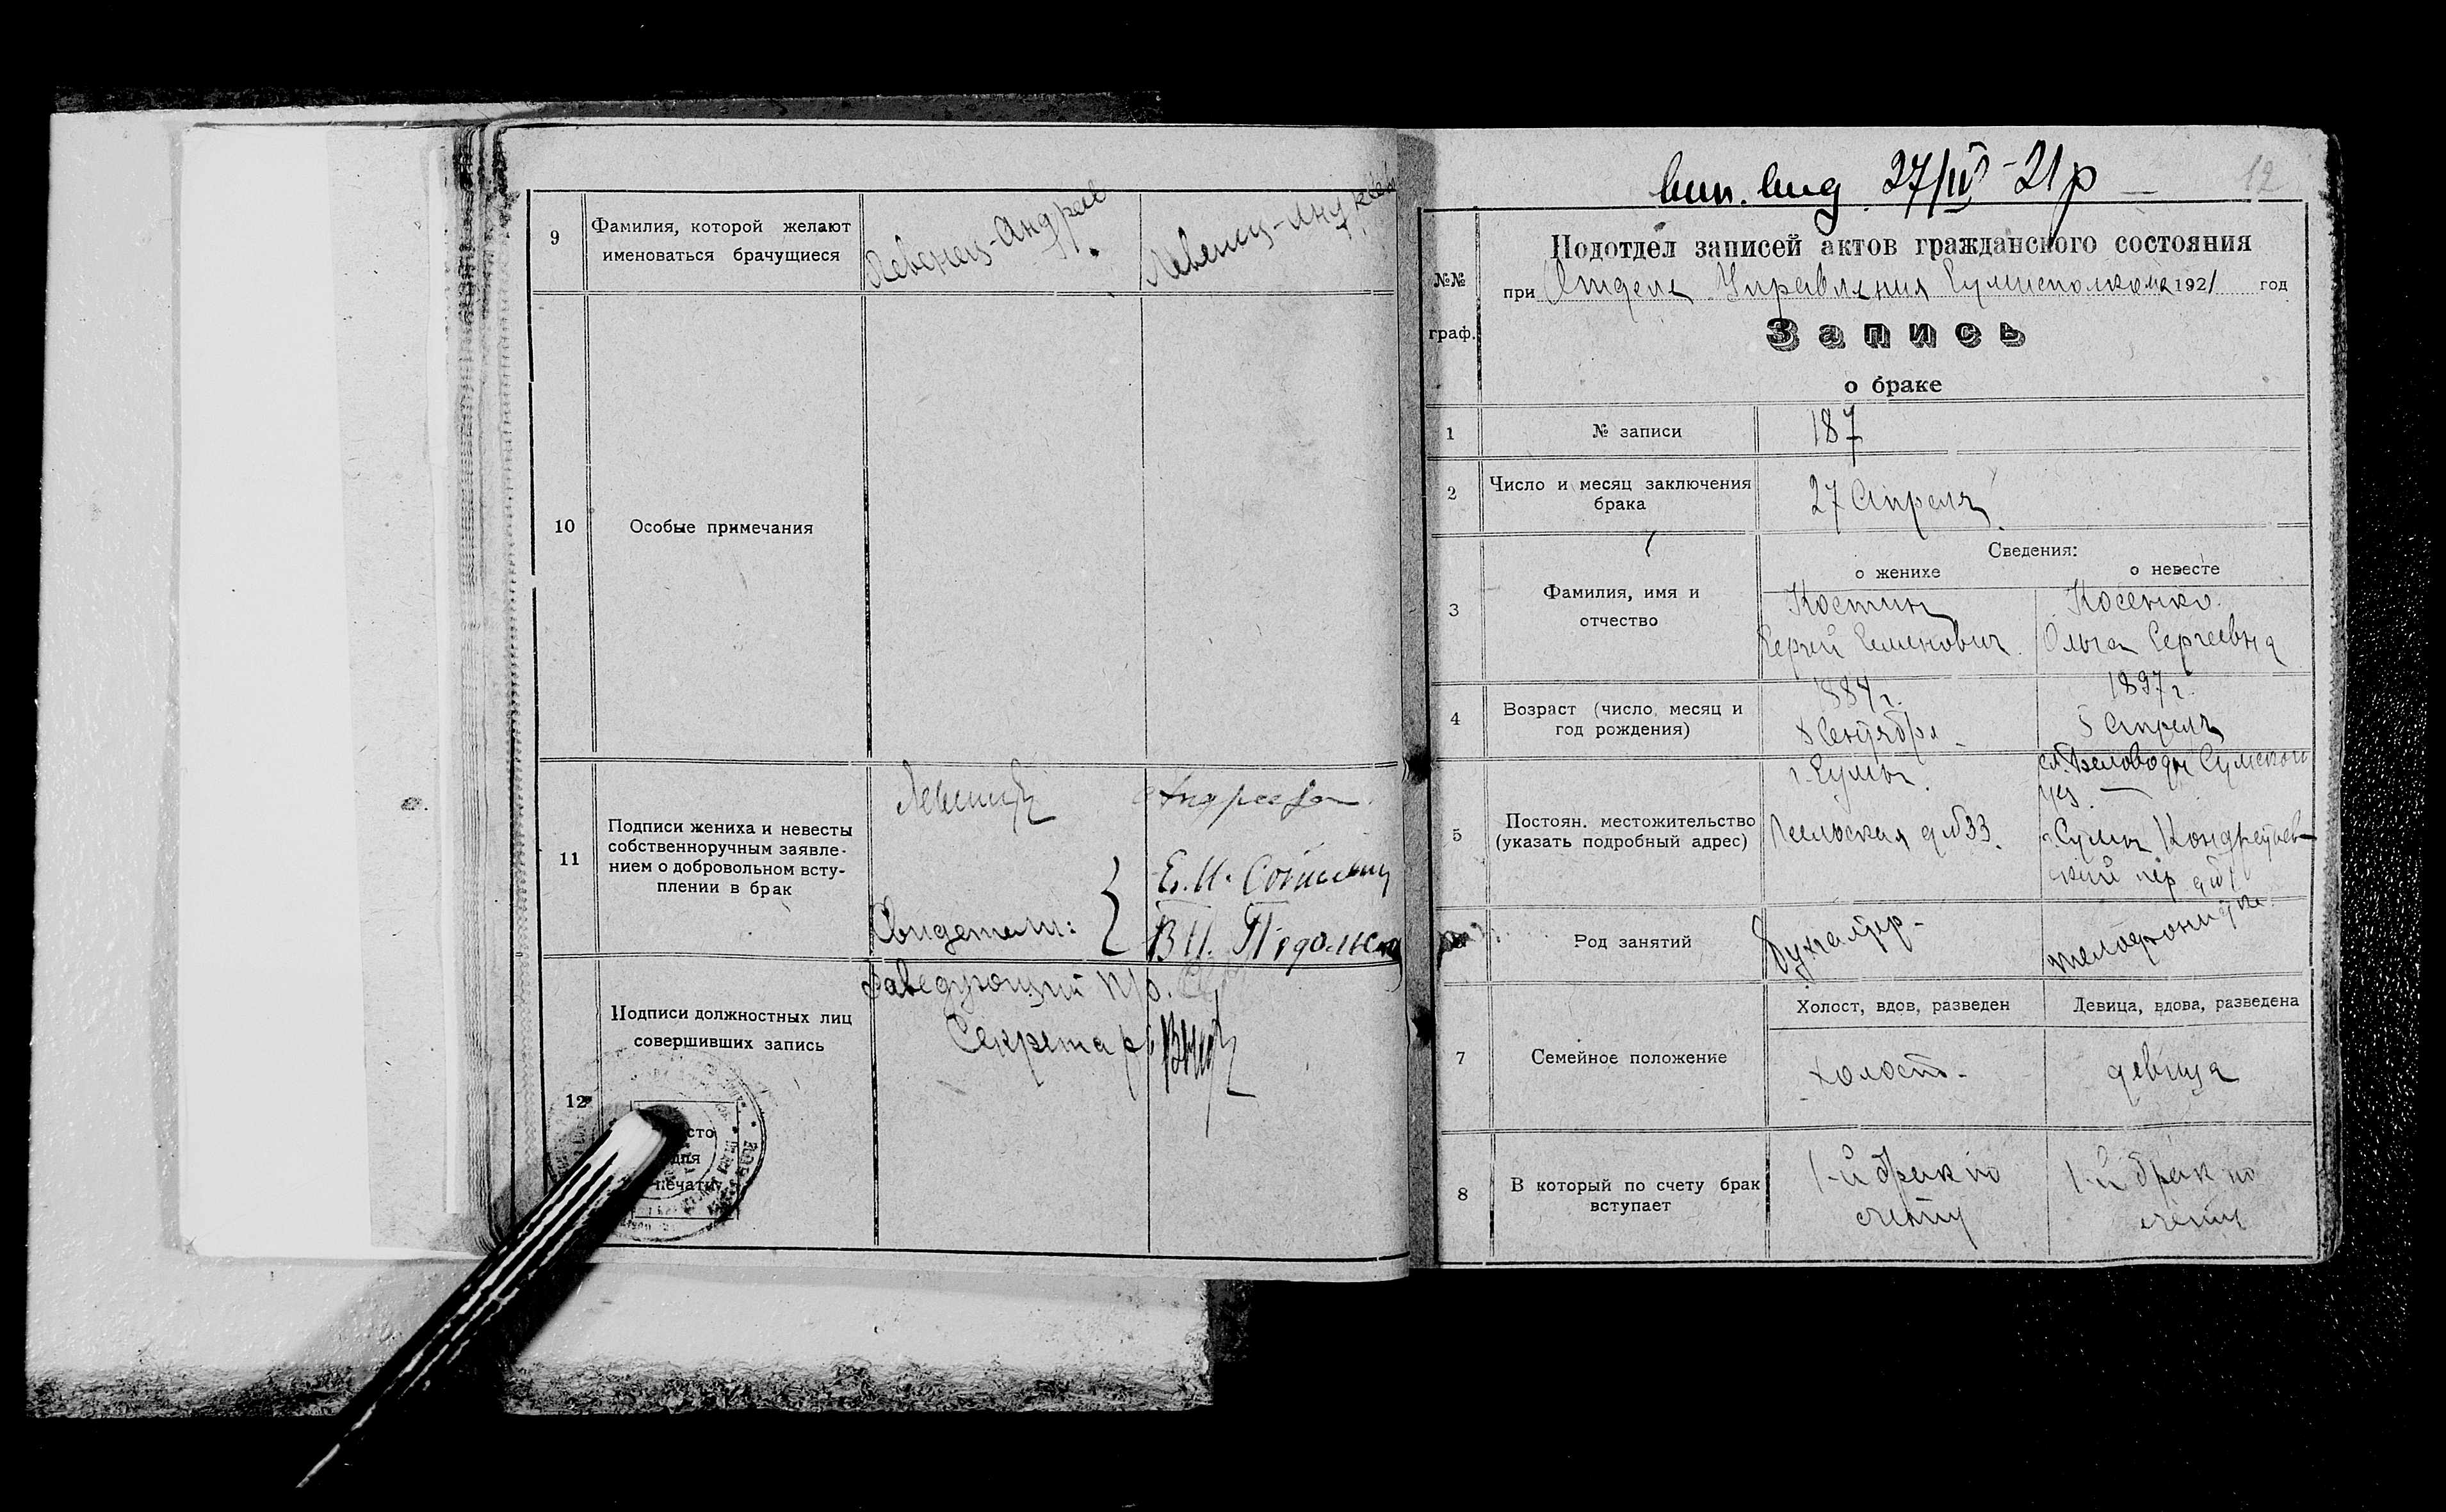 9
Фамилия, которой желают
именоваться брачущиеся
Левенец-Андреев
Левенец-
10
Особые примечания
11
Подписи жениха и невесты
собственноручным заявле-
нием о добровольном всту-
плении в брак
Свидетели:
Е. И.
В П.
12
Подписи должностных лиц
совершивших запись
Заведующий п/о.
Секретарь
сто
для
печати
вип. вид 27/IV-21р
12
№№
граф.
Подотдел записей актов гражданского состояния
при Отделе Управления Сумисполкома 1921 год
Запись
о браке
1
№ записи
187
2
Число и месяц заключения
брака
27 Апреля
Сведения:
о женихе
о невесте
3
Фамилия, имя и
отчество
Костин
Сергей Семенович.
Косенко.
Ольга Сергеевна
4
Возраст (число, месяц и
год рождения)
1884 г.
8 Сентября
1897 г.
5 Апреля
5
Постоян. местожительство
(указать подробный адрес)
г. Сумы.
Псельская д №33.
сл. Беловоды Сумской
уез.
г. Сумы Кондратьев-
ский пер. д №1.
Род занятий
Бухгалтер-
телефонистка.
7
Семейное положение
Холост, вдов, разведен
Девица, вдова, разведена
холост-
девица
8
В который по счету брак
вступает
1-й брак по
счету
1-й брак по
счету